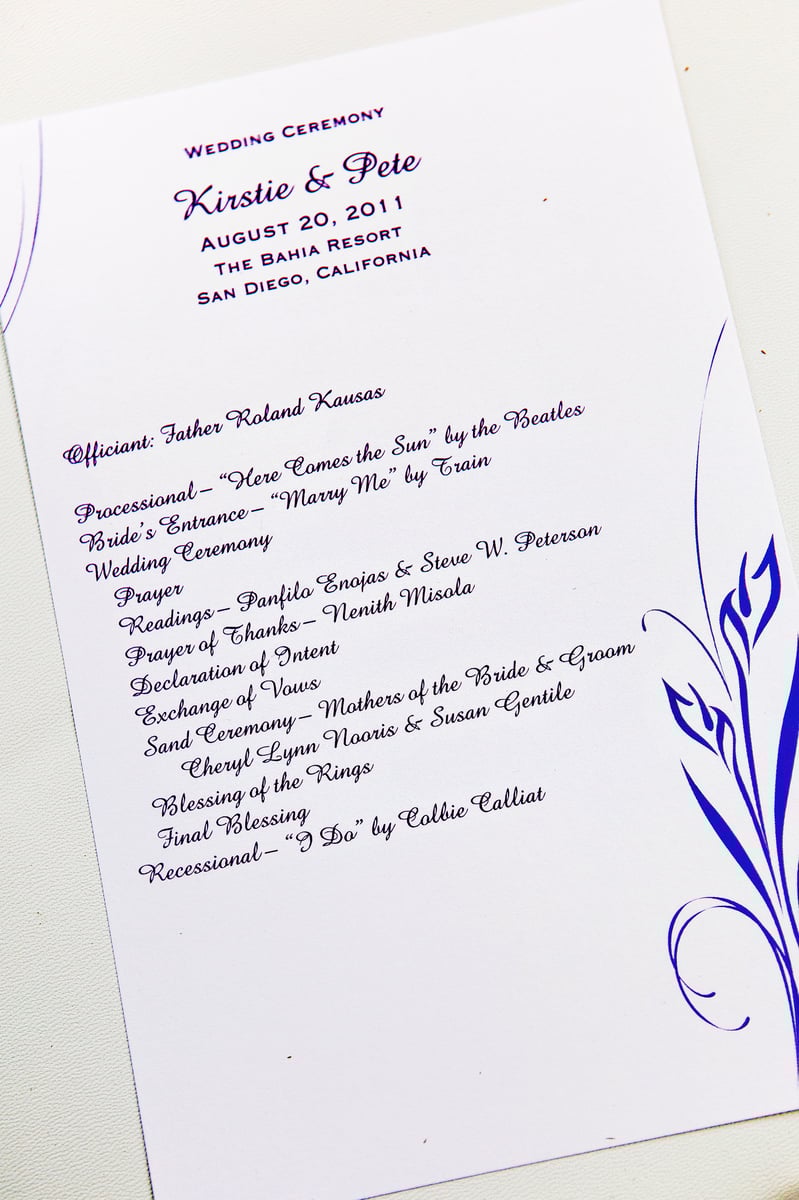 Wedding Ceremony
Kirstie & Pete
August 20, 2011
The Bahia Resort
San Diego, California
Officiant: Father Roland Kausas
Processional – “Here Comes the Sun” by the Beatles
Bride’s Entrance – “Marry Me” by Train
Wedding Ceremony
Prayer
Readings – Panfilo Enojas & Steve W. Peterson
Prayer of Thanks – Nenith Misola
Declaration of Intent
Exchange of Vows
Sand Ceremony – Mothers of the Bride & Groom
Cheryl Lynn Nooris & Susan Gentile
Blessing of the Rings
Final Blessing
Recessional – “I Do” by Colbie Calliat